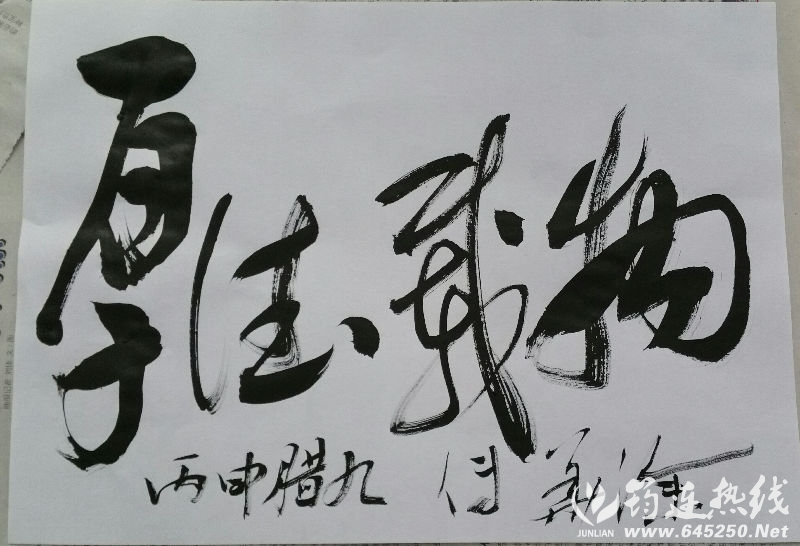 厚德载物
丙申腊九
筠连热线
JUNLIAN
www.645250.Net